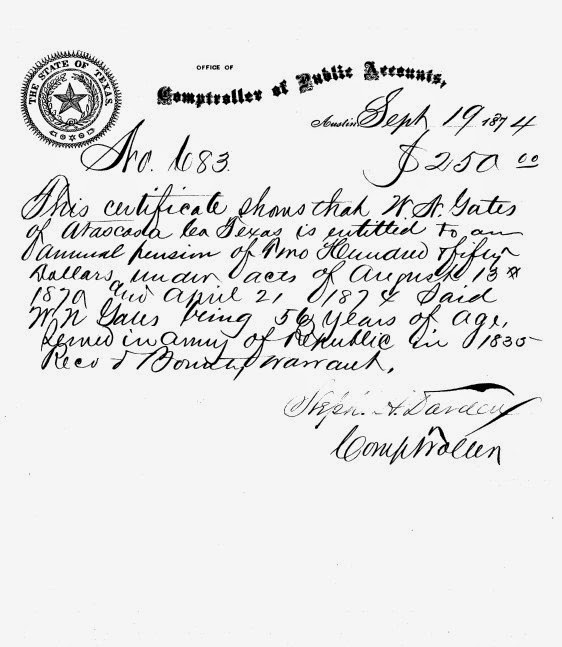 THE STATE OF TEXAS.
OFFICE OF
Comptroller of Public Accounts,
Austin Sept 19 1874
No. 683. $250 00
This certificate shows that W. N. Gates
of Atascosa Co Texas is entitled to an
annual pension of Two Hundred & fifty
Dollars, under acts of August 13th
1870 and April 21 1874 Said
W N Gates being 56 Years of Age,
served in army of Republic in 1835
Recd Bounty warrant.
Steph. H. Darden
Comptroller